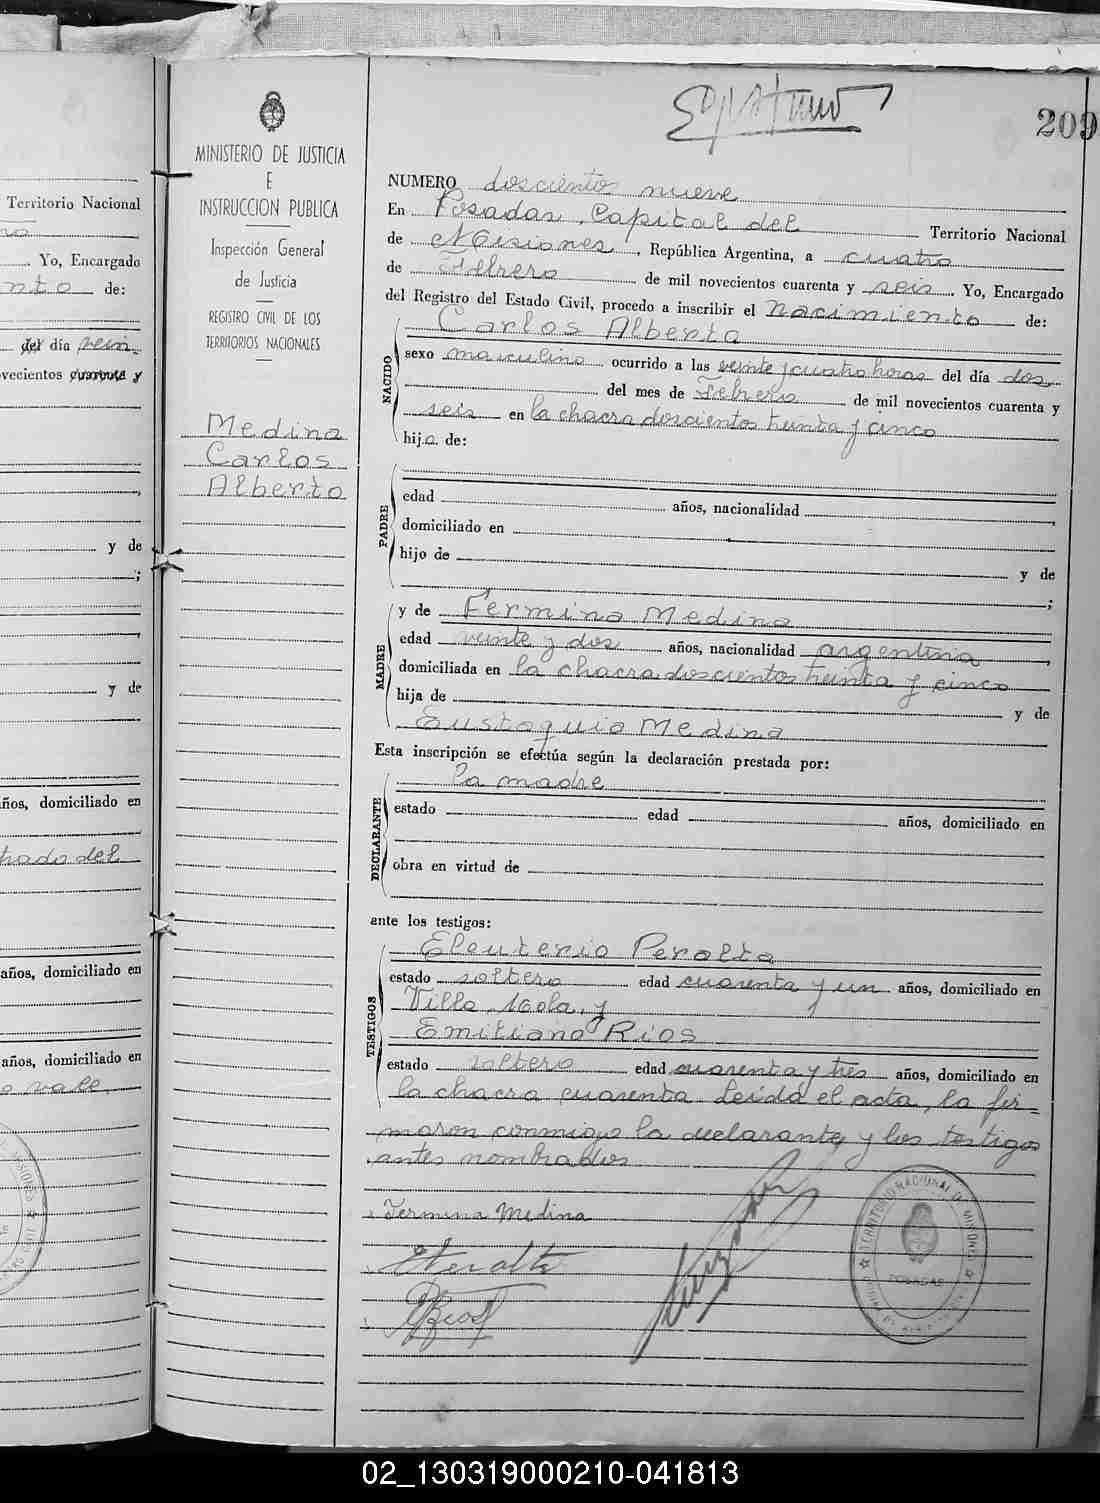 209
NUMERO dosciento nueve
En Posadas, Capital del Territorio Nacional
de Misiones, República Argentina, a cuatro
de Febrero de mil novecientos cuarenta y seis. Yo, Encargado
del Registro del Estado Civil, procedo a inscribir el nacimiento de:
Carlos Alberto
NACIDO
sexo masculino ocurrido a las veinte y cuatro horas del día dos
del mes de Febrero de mil novecientos cuarenta y
seis en la chacra doscientos treinta y cinco
hijo de:
PADRE
edad años, nacionalidad
domiciliado en
hijo de y de
;
MADRE
y de Fermina Medina
edad veinte y dos años, nacionalidad argentina,
domiciliada en la chacra doscientos treinta y cinco
hija de y de
Eustaquia Medina
Esta inscripción se efectúa según la declaración prestada por:
la madre
DECLARANTE
estado edad años, domiciliado en
obra en virtud de
ante los testigos:
TESTIGOS
Eleuterio Peralta
estado soltero edad cuarenta y un años, domiciliado en
Villa y
Emiliano Rios
estado soltero edad cuarenta y tres años, domiciliado en
la chacra cuarenta. Leída el acta, la fir-
maron conmigo la declarante y los testigos
antes nombrados
Fermina Medina
EPeralta
Rios
TERRITORIO NACIONAL DE MISIONES
POSADAS
MINISTERIO DE JUSTICIA
E
INSTRUCCION PUBLICA
Inspección General
de Justicia
REGISTRO CIVIL DE LOS
TERRITORIOS NACIONALES
Medina
Carlos
Alberto
Territorio Nacional
Yo, Encargado
nto de:
del día vein-
vecientos cuarenta y
y de
;
y de
años, domiciliado en
del
años, domiciliado en
años, domiciliado en
vale.
02_130319000210-041813